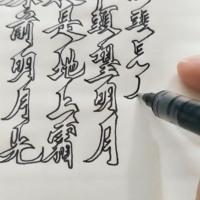 前明月光
是地上霜
頭望明月
頭